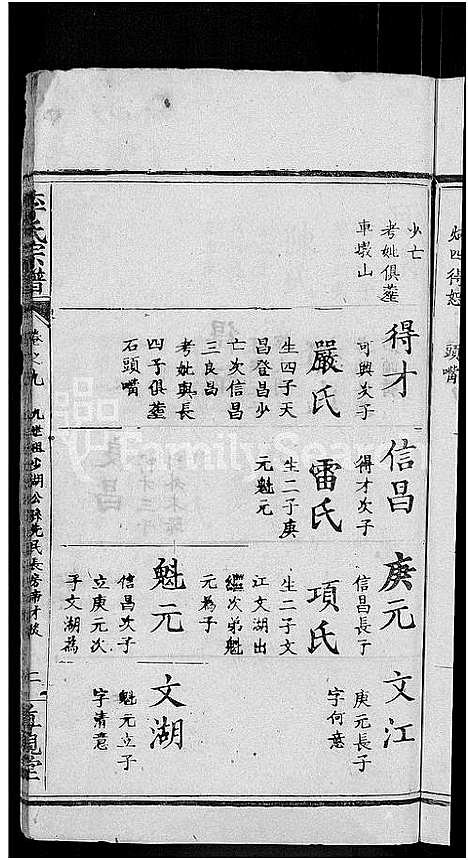 少亡
考妣俱葬
車墩山
得才
可興次子
嚴氏
生四子天
昌登昌少
亡次信昌
三良昌
考妣與長
四子俱葬
石頭嘴
信昌
得才次子
雷氏
生二子庚
元魁元
庚元
信昌長子
項氏
生二子文
江文湖出
繼次弟魁
元為子
魁元
信昌次子
立庚元次
子文湖為
文江
庚元長子
字何意
文湖
魁元立子
字清意
李氏宗譜
卷之九
九世祖少湖公
二
頭嘴
FamilySearch